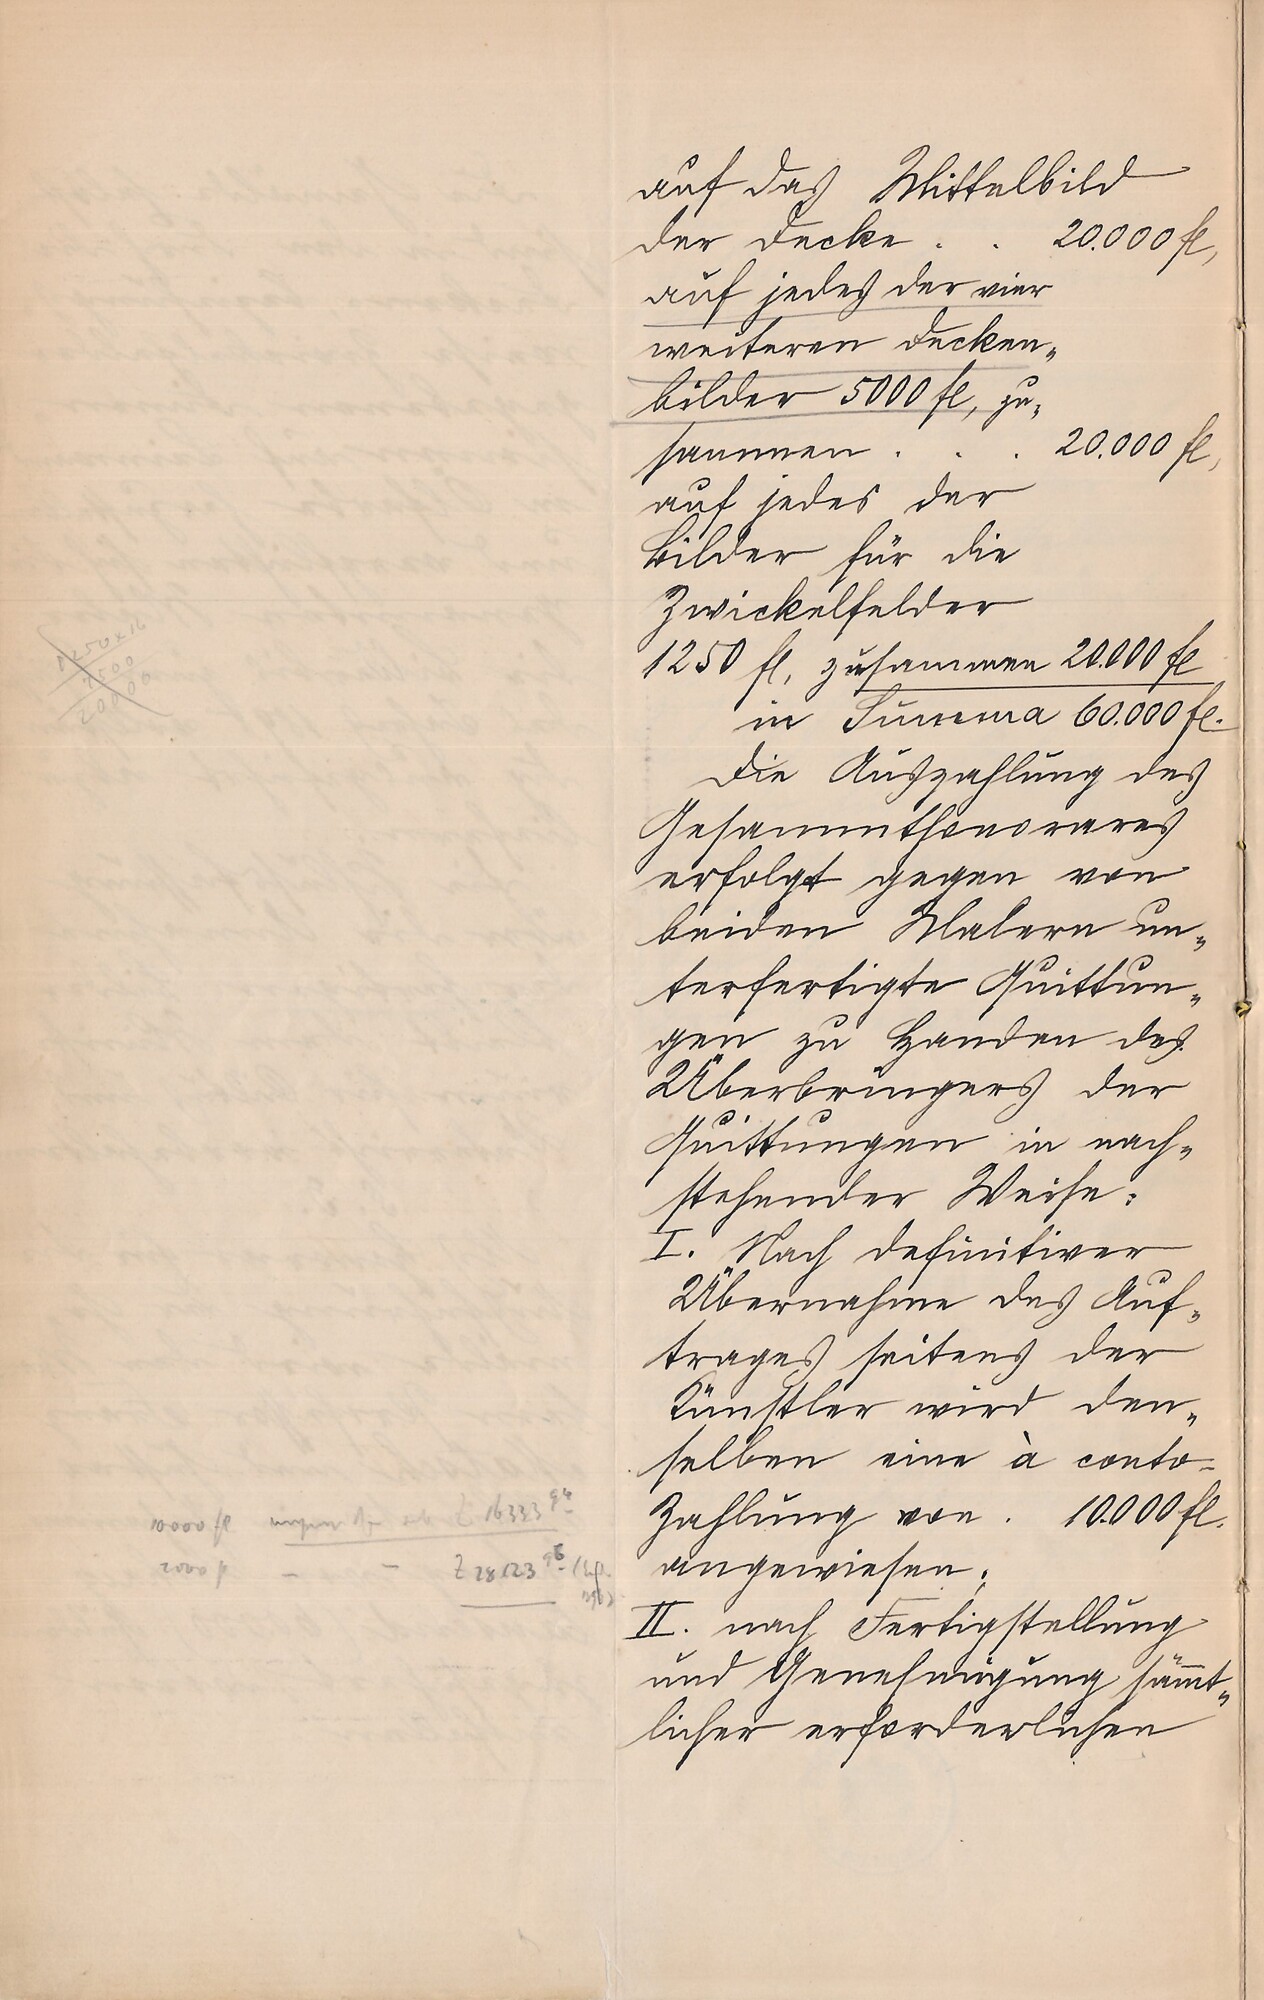 auf das Mittelbild
der Decke . . 20.000 fl,
auf jedes der vier
weiteren Decken-
bilder 5000 fl, zu-
sammen . . . 20.000 fl,
auf jedes der
Bilder für die
Zwickelfelder
1250 fl, zusammen 20.000 fl
in Summa 60.000 fl.
Die Auszahlung des
Gesammthonorares
erfolgt gegen von
beiden Malern un-
terfertigte Quittun-
gen zu Handen des
Überbringers der
Quittungen in nach-
stehender Weise:
I. Nach definitiver
Übernahme des Auf-
trages seitens der
Künstler wird den-
selben eine à conto-
Zahlung von . 10.000 fl.
angewiesen;
II. nach Fertigstellung
und Genehmigung sämmt-
licher erforderlichen
1250 x 16
7500
20000
10000 fl Z 16333 94
2000 fl - - Z 28123 96